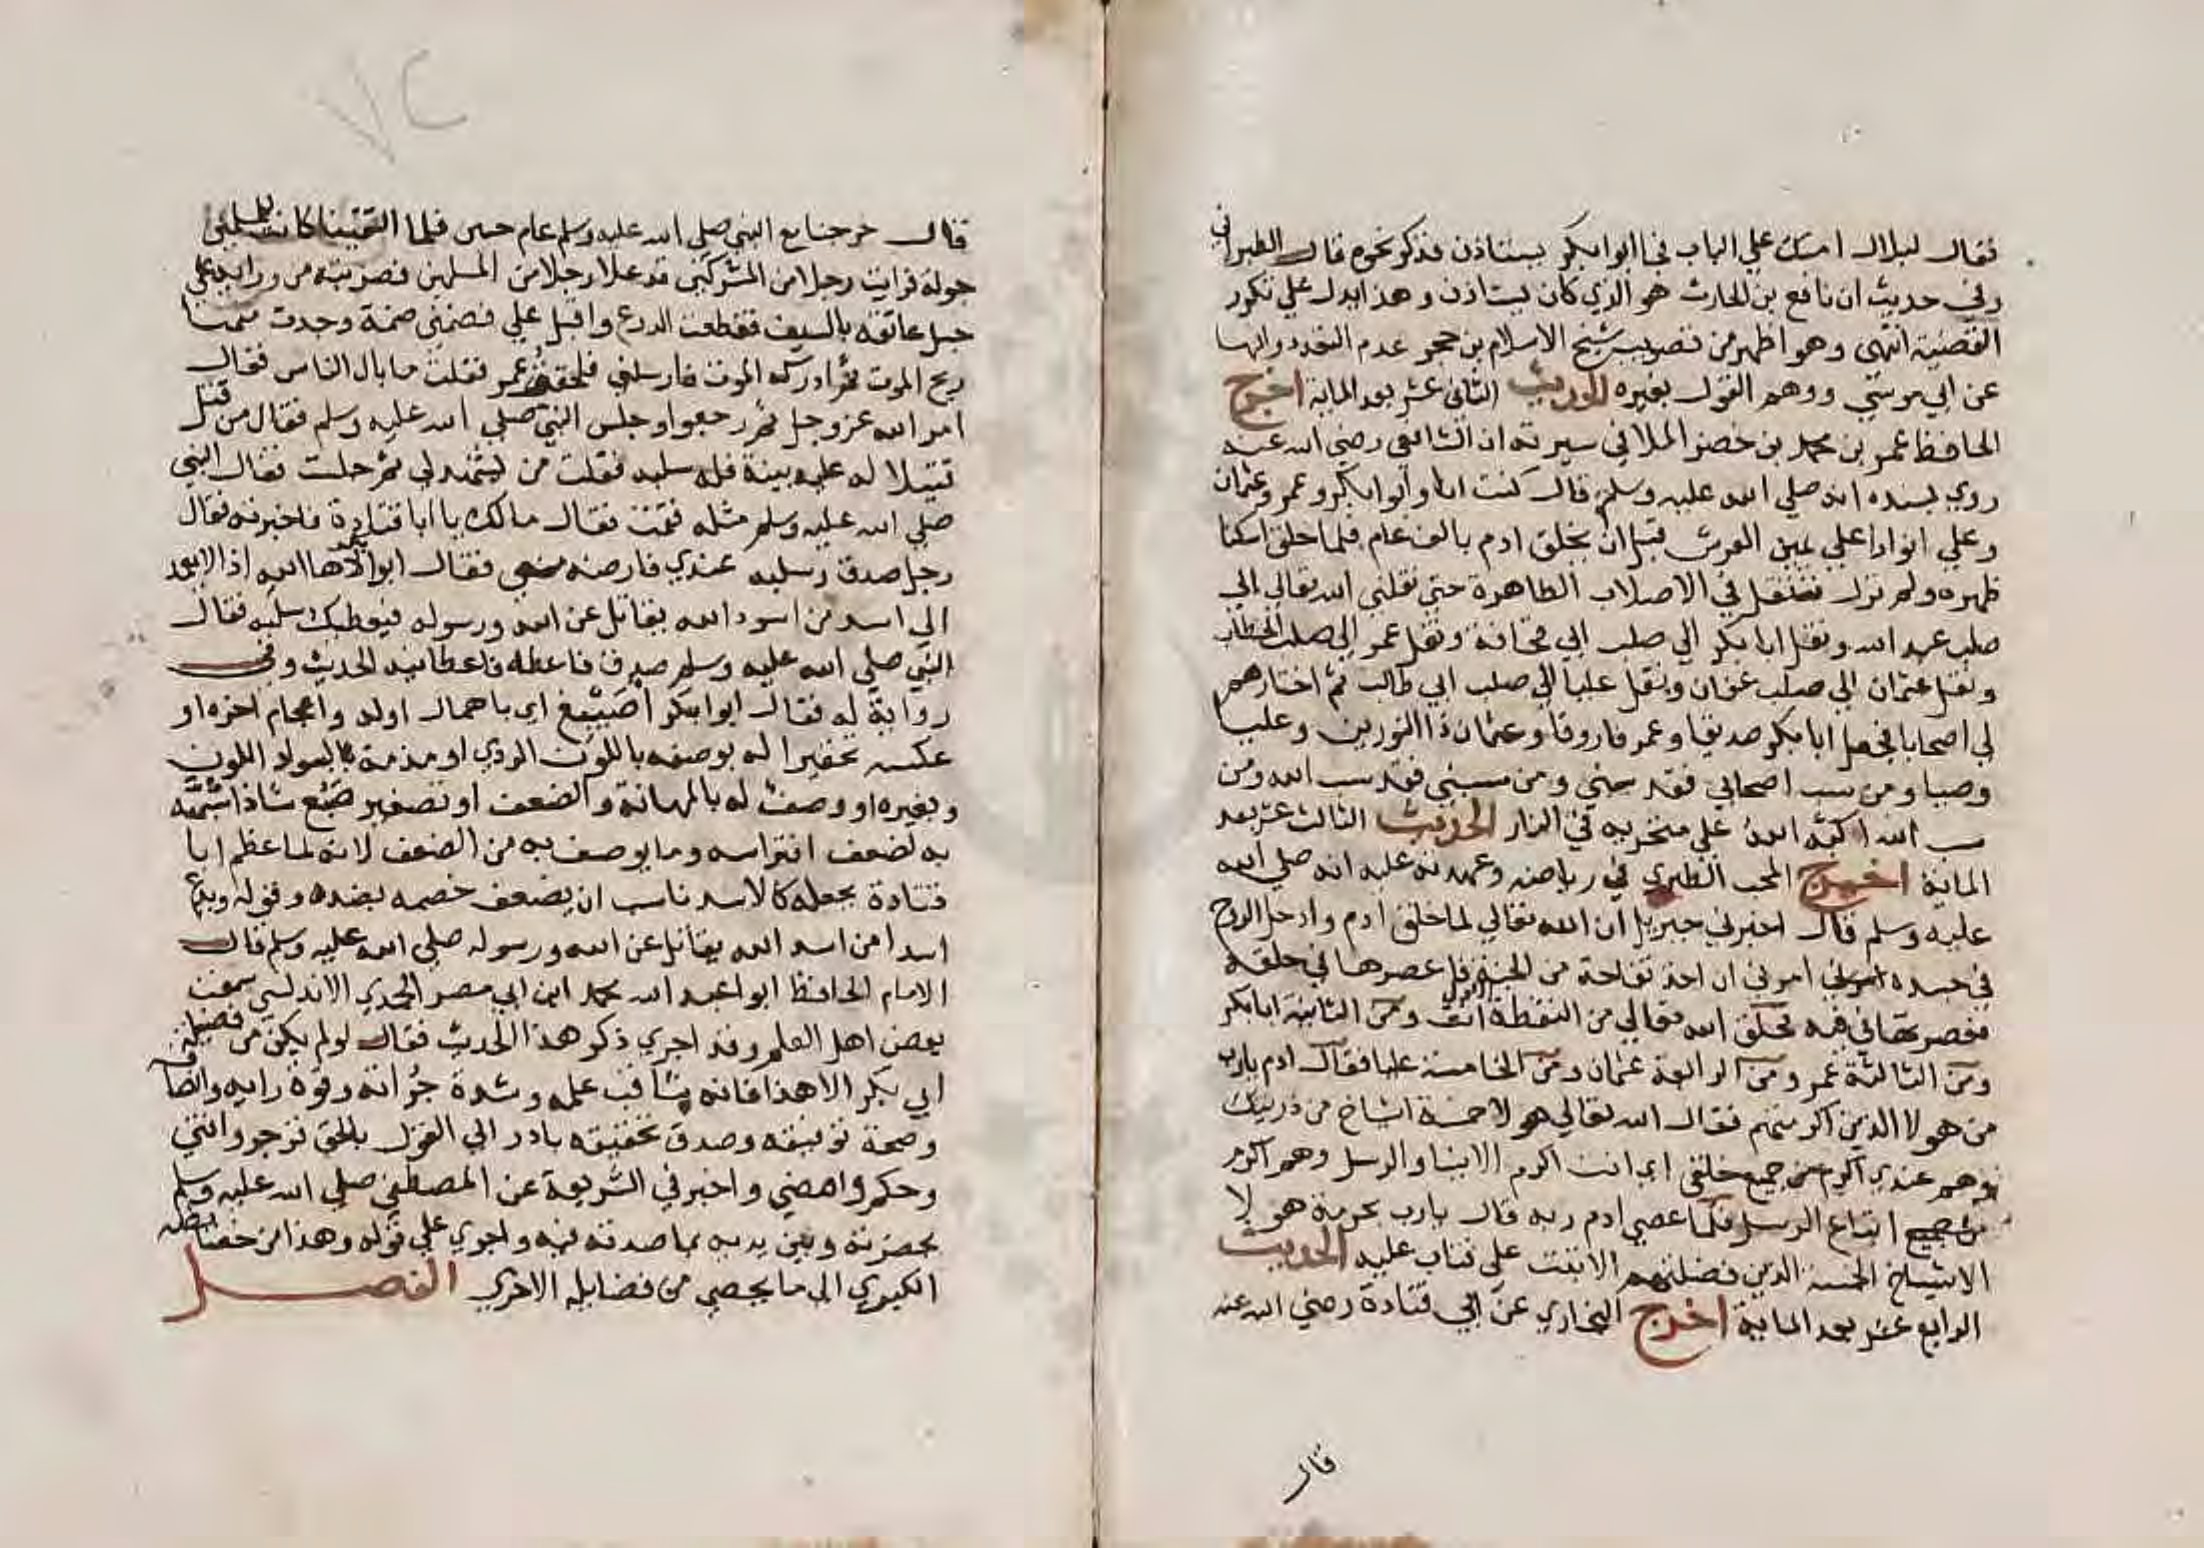 فقال لبلال امسك علي الباب فجا ابوا بكر يستاذن فذكر نحوه قال الطبراني
وفي حديث ان نافع بن الحارث هو الذي كان يستاذن وهذا يدل علي تكرر
القصية انتهي وهو اظهر من تصويب شيخ الاسلام بن حجر عدم التعدد وانها
عن ابي موسي ووهم القول بغيره الحديث الثاني عشر بعد الماية اخرج
الحافظ عمر بن محمد بن خضر الملا في سيرته ان الشافعي رضي الله عنه
روي بسنده انه صلي الله عليه وسلم قال كنت انا وابوا بكر وعمر وعثمان
وعلي انوارا علي يمين العرش قبل ان يخلق ادم بالف عام فلما خلق اسكنا
ظهره ولم نزل ننتقل في الاصلاب الطاهرة حتي نقلني الله تعالي الي
صلب عبد الله ونقل ابا بكر الي صلب ابي قحافة ونقل عمر الي صلب الخطاب
ونقل عثمان الي صلب عفان ونقل عليا الي صلب ابي طالب ثم اختارهم
لي اصحابا فجعل ابا بكر صديقا وعمر فاروقا وعثمان ذا النورين وعليا
وصيا ومن سب اصحابي فقد سبني ومن سبني فقد سب الله ومن
سب الله اكبه الله علي منخريه في النار الحديث الثالث عشر بعد
الماية اخرج المحب الطبري في رياضه وعهدته عليه انه صلي الله
عليه وسلم قال اخبرني جبريل ان الله تعالي لما خلق ادم وادخل الروح
في جسده امرني ان اخذ تفاحة من الجنة فاعصرها في حلقه
فعصرتها في فيه فخلق الله تعالي من النقطة الاولي انت ومن الثانية ابا بكر
ومن الثالثة عمر ومن الرابعة عثمان ومن الخامسة عليا فقال ادم يارب
من هولا الذين اكرمتهم فقال الله تعالي هولا خمسة اشياخ من ذريتك
وهم عندي اكرم من جميع خلقي اي انت اكرم الانبيا والرسل وهم اكرم
من جميع اتباع الرسل فلما عصي ادم ربه قال يارب بحرمة هولا
الاشياخ الخمسة الذين فضلتهم الا تبت علي فتاب عليه الحديث
الرابع عشر بعد الماية اخرج البخاري عن ابي قتادة رضي الله عنه
قال
٧٢
قال خرجنا مع النبي صلي الله عليه وسلم عام حنين فلما التقينا كانت للمسلمين
جولة فرايت رجلا من المشركين قد علا رجلا من المسلمين فضربته من ورايه علي
حبل عاتقه بالسيف فقطعت الدرع واقبل علي فضمني ضمة وجدت منها
ريح الموت ثم ادركه الموت فارسلني فلحقت عمر فقلت ما بال الناس فقال
امر الله عز وجل ثم رجعوا وجلس النبي صلي الله عليه وسلم فقال من قتل
قتيلا له عليه بينة فله سلبه فقلت من يشهد لي ثم جلست فقال النبي
صلي الله عليه وسلم مثله فقمت فقال مالك يا ابا قتادة فاخبرته فقال
رجل صدق وسلبه عندي فارضه مني فقال ابوا بكر لاها الله اذا لا يعمد
الي اسد من اسود الله يقاتل عن الله ورسوله فيعطيك سلبه فقال
النبي صلي الله عليه وسلم صدق فاعطه فاعطانيه الحديث وفي
رواية له فقال ابوا بكر اصيبغ اي باهمال اوله واعجام اخره او
عكسه تحقيرا له بوصفه باللون الردي او مذمة بالسواد اللون
وبغيره او وصف له بالمهانة والضعف او تصغير ضبع شاذا شبهه
به لضعف افتراسه وما يوصف به من الضعف لانه لما عظم ابا
قتادة بجعله كالاسد ناسب ان يضعف خصمه بضده وقوله ويدع
اسدا من اسد الله يقاتل عن الله ورسوله صلي الله عليه وسلم قال
الامام الحافظ ابوا عبد الله محمد ابن ابي مصر الحميدي الاندلسي سمعت
بعض اهل العلم وقد اجري ذكر هذا الحديث فقال لو لم يكن من فضيلة
ابي بكر الا هذا فانه بثاقب علمه وشدة جراته وقوة رايه وانصافه
وصحة توفيقه وصدق تحقيقه بادر الي القول بالحق فزجر وافتي
وحكم وامضي واخبر في الشريعة عن المصطفي صلي الله عليه وسلم
بحضرته وبين يديه بما صدقه فيه واجري علي قوله وهذا من خصايصه
الكبري الي ما يحصي من فضايله الاخري الفصل